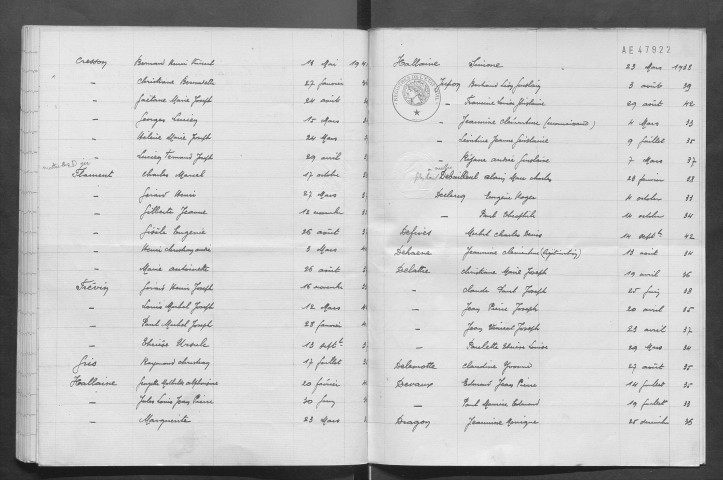 Cresson Bernard Henri Vincent 18 Mai 194
— Christiane Bernadette 27 janvier
— Gaëtane Marie Joseph 24 août
— Georges Lucien 15 Mars
— Hélène Marie Joseph 24 Mars
— Lucien Fernand Joseph 29 avril
Flament Charles Marcel 17 octobre
— Gérard Henri 27 Mars
— Gilberte Jeanne 12 novembre
— Gisèle Eugenie 26 août
— Henri Christian André 3 Mars
— Marie antoinette 26 août
Frévin Gérard Henri Joseph 16 novembre
— Louis Michel Joseph 12 Mars
— Paul Michel Joseph 28 janvier
— Thérèse Ursule 13 septbre
Gris Raymond Christian 17 juillet
Hallaine Mathilde Alphonsine 20 février
— Jules Louis Jean Pierre 30 juin
— Marguerite 23 Mars
AE 47922
Hallaine Simone 23 Mars 1938
Jupon Bertrand Léon Ghislain 3 août 39
— Francine Louise Ghislaine 29 août 42
— Jeannine Clémentine 4 Mars 33
— Léontine Jeanne Ghislaine 9 juillet 35
— Réjane Andrée Ghislaine 7 Mars 37
Debuillent Alain Marc Charles 28 février 38
Declercq Eugène Roger 4 octobre 33
— Paul Théophile 14 octobre 34
Defives Michel Charles Denis 14 septbre 42
Dehaene Jeannine Clémentine 13 avril 34
Delattre Christiane Marie Joseph 19 avril 36
— Claude Paul Joseph 25 juin 38
— Jean Pierre Joseph 20 avril 35
— Jean Vincent Joseph 23 avril 37
— Paulette Thérèse Louise 29 Mars 34
Delamotte Claudine Yvonne 27 août 35
Devaux Edmond Jean Pierre 14 juillet 35
— Paul Maurice Edmond 19 juillet 33
Dragon Jeannine Monique 25 décembre 36